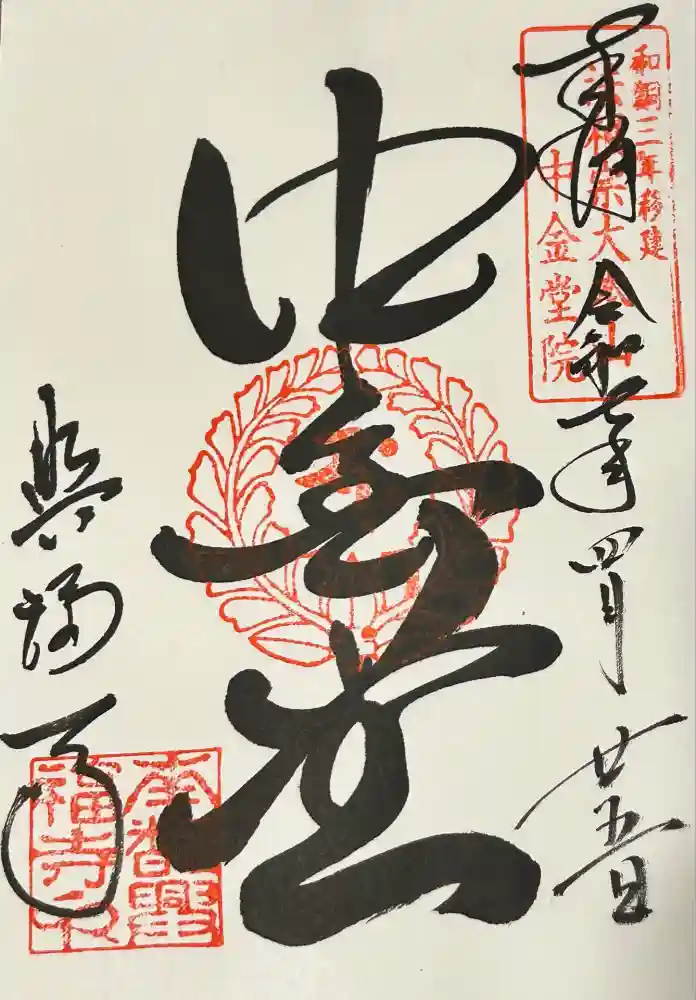 和銅三年移建
法相宗大本山
中金堂院
奉拝 令和七年四月廿五日
中金堂
興福寺